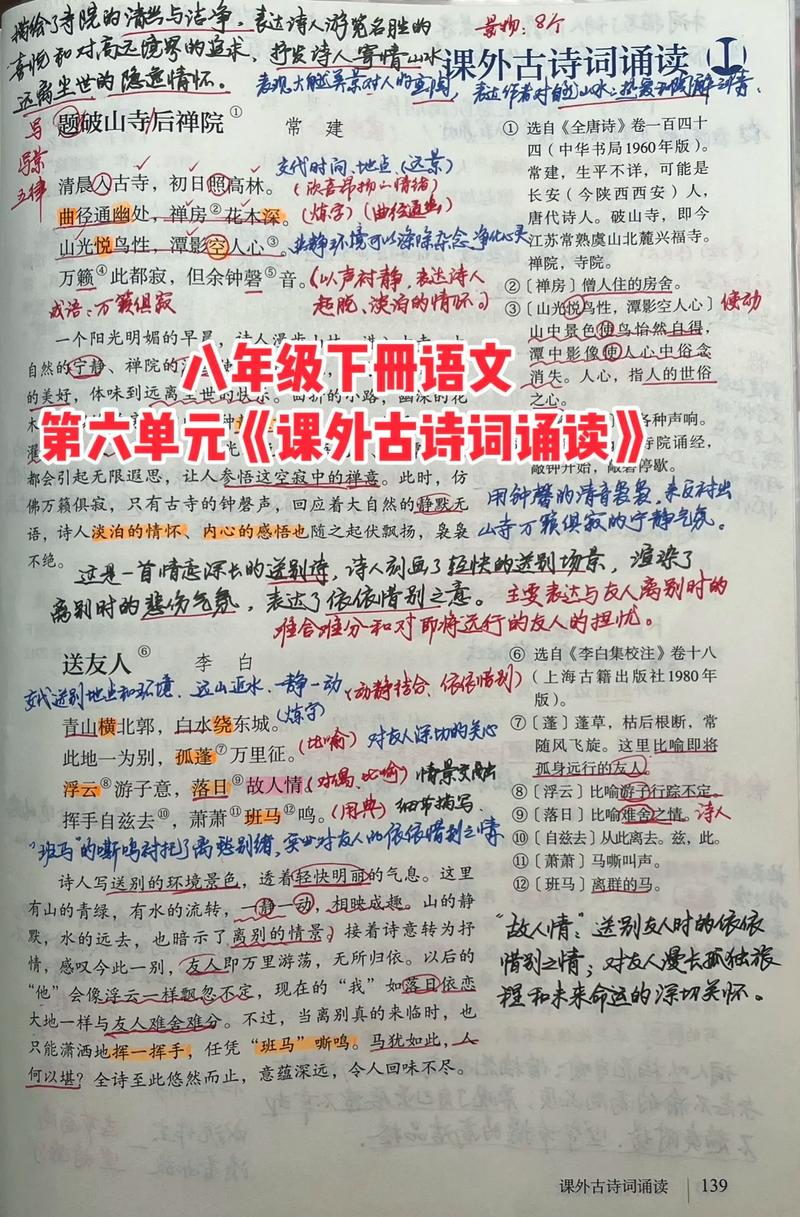 描绘了寺院的清幽与洁净，表达诗人游览名胜的
喜悦和对高远境界的追求，抒发诗人寄情山水
远离尘世的隐逸情怀。
景物：8个
课外古诗词诵读
表现大自然美景对人的
表达作者对自然山水之热爱和
题破山寺后禅院①
常 建
写
景
五律
清晨入古寺，初日照高林。
交代时间、地点（远景）
曲径通幽处，禅房②花木深。
（炼字）（曲径通幽）
山光悦鸟性，潭影空人心③。
此静环境可以涤除杂念、净化心灵
万籁④此都寂，但余钟磬⑤音。
（以声衬静，表达诗人
超脱、淡泊的情怀。）
成语：万籁俱寂
① 选自《全唐诗》卷一百四十
四（中华书局1960年版）。
常建，生平不详，可能是
长安（今陕西西安）人，
唐代诗人。破山寺，即今
江苏常熟虞山北麓兴福寺。
禅院，寺院。
②〔禅房〕僧人住的房舍。
③〔山光悦鸟性，潭影空人心〕
使动
山中景色使鸟怡然自得，
潭中影像使人心中俗念
消失。人心，指人的世俗
之心。
各种声响。
寺院诵经，
敲钟开始，敲磬停歇。
一个阳光明媚的早晨，诗人漫步
自然的宁静、禅院的
的美好，体味到远离世尘的快乐。曲折的小路，幽深的花
八年级下册语文
第六单元《课外古诗词诵读》
都会引起无限遐思，让人参悟这空寂中的禅意。此时，仿
佛万籁俱寂，只有古寺的钟磬声，回应着大自然的静默无
语，诗人淡泊的情怀、内心的感悟也随之起伏飘扬，袅袅
不绝。
用钟磬的清音袅袅，来反衬出
山寺万籁俱寂的宁静气氛。
这是一首情意深长的送别诗，诗人刻画了轻快的送别场景，渲染了
离别时的悲伤气氛，表达了依依惜别之意。
主要表达与友人离别时的
难舍难分和对即将远行的友人的担忧。
送友人⑥
李 白
交代送别地点和环境、远山近水、一静一动
（动静结合、依依惜别）
青山横北郭，白水绕东城。
（炼字）
此地一为别，孤蓬⑦万里征。
（比喻）对友人深切的关心
浮云⑧游子意，落日⑨故人情
（对偶、比喻）情景交融
挥手自兹去⑩，萧萧⑪班马⑫鸣。
（用典）细节描写
“班马”的嘶鸣衬托了离愁别绪，对友人的依依惜别之情
⑥ 选自《李白集校注》卷十八
（上海古籍出版社1980年
版）。
⑦〔蓬〕蓬草，枯后根断，常
随风飞旋。这里比喻即将
孤身远行的友人。
⑧〔浮云〕比喻游子行踪不定。
⑨〔落日〕比喻难舍之情。
诗人
⑩〔自兹去〕从此离去。兹，此。
⑪〔萧萧〕马嘶叫声。
⑫〔班马〕离群的马。
诗人写送别的环境景色，透着轻快明丽的气息。这里
有山的青绿，有水的流转，一静一动，相映成趣。山的静
默，水的远去，也暗示了离别的情景；接着诗意转为抒
情，感叹今此一别，友人即万里游荡，无所归依。以后的
“他”会像浮云一样飘忽不定，现在的“我”如落日依恋
大地一样与友人难舍难分。不过，当离别真的来临时，也
只能潇洒地挥一挥手，任凭“班马”嘶鸣。马犹如此，人
何以堪？全诗至此悠然而止，意蕴深远，令人回味不尽。
“故人情”：送别友人时的依依
惜别之情；对友人漫长孤独旅
程和未来命运的深切关怀。
课外古诗词诵读 139